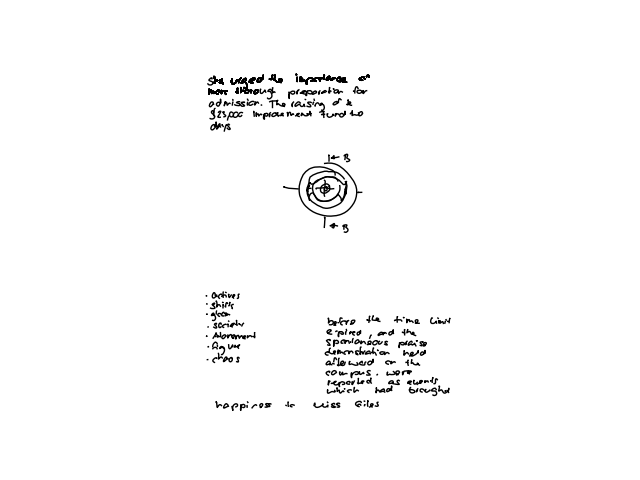 She urged the importance of
more thorough preparation for
admission. The raising of a
$25,000 improvement fund two
days
B
B
• actives
• shifts
• society
• Atonement
• figure
• chaos
before the time limit
expired, and the
spontaneous praise
demonstration held
afterward on the
campus, were
reported as events
which had brought
happiness to Miss Giles